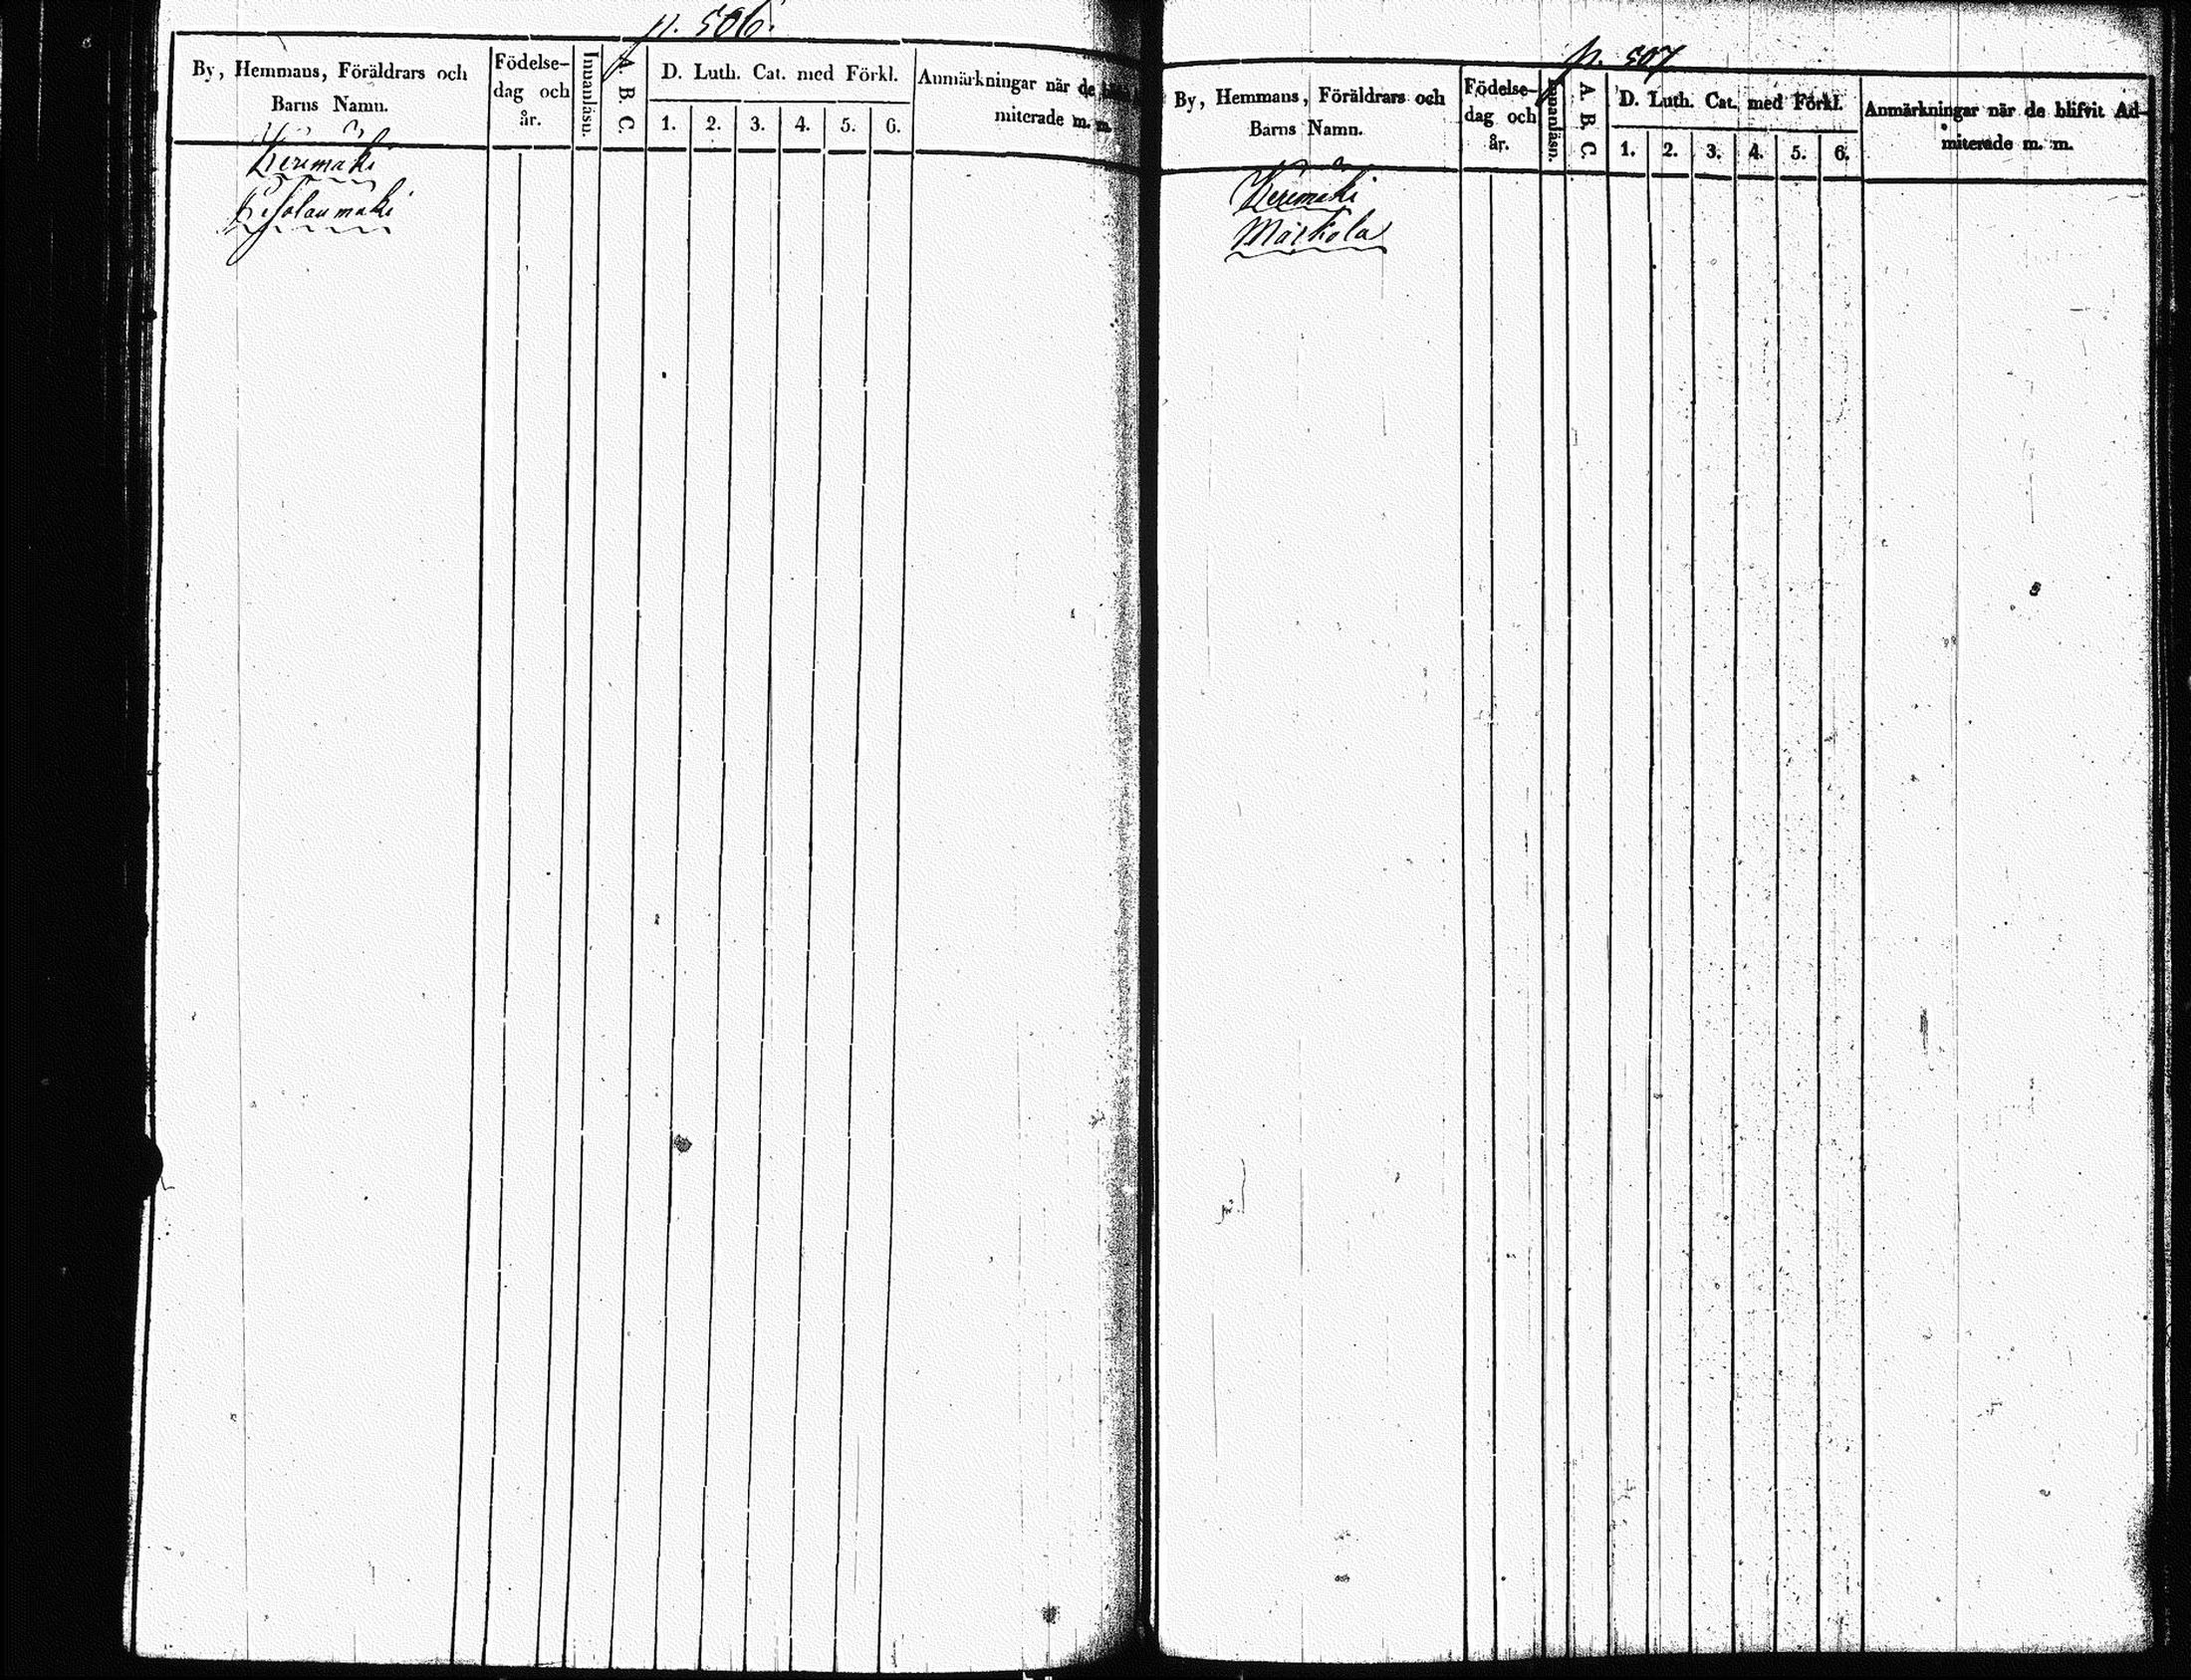 p. 506.
By, Hemmans, Föräldrars och
Barns Namn.
Födelse-
dag och
år.
Innanläsn.
A. B. C
D. Luth. Cat. med Förkl.
1. 2. 3. 4. 5. 6.
Anmärkningar när de
miterade m. m.
Kerimäki
p. 507
By, Hemmans, Föräldrars och
Barns Namn.
Födelse-
dag och
år.
Innanläsn.
A. B. C
D. Luth. Cat. med Förkl.
1. 2. 3. 4. 5. 6.
Anmärkningar när de blifvit Ad-
miterade m. m.
Kerimäki